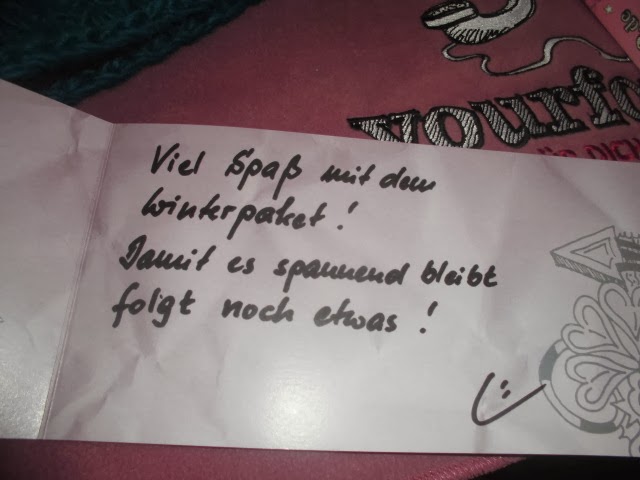 yourfo
für DICH
Viel Spaß mit dem
Winterpaket!
Damit es spannend bleibt
folgt noch etwas!